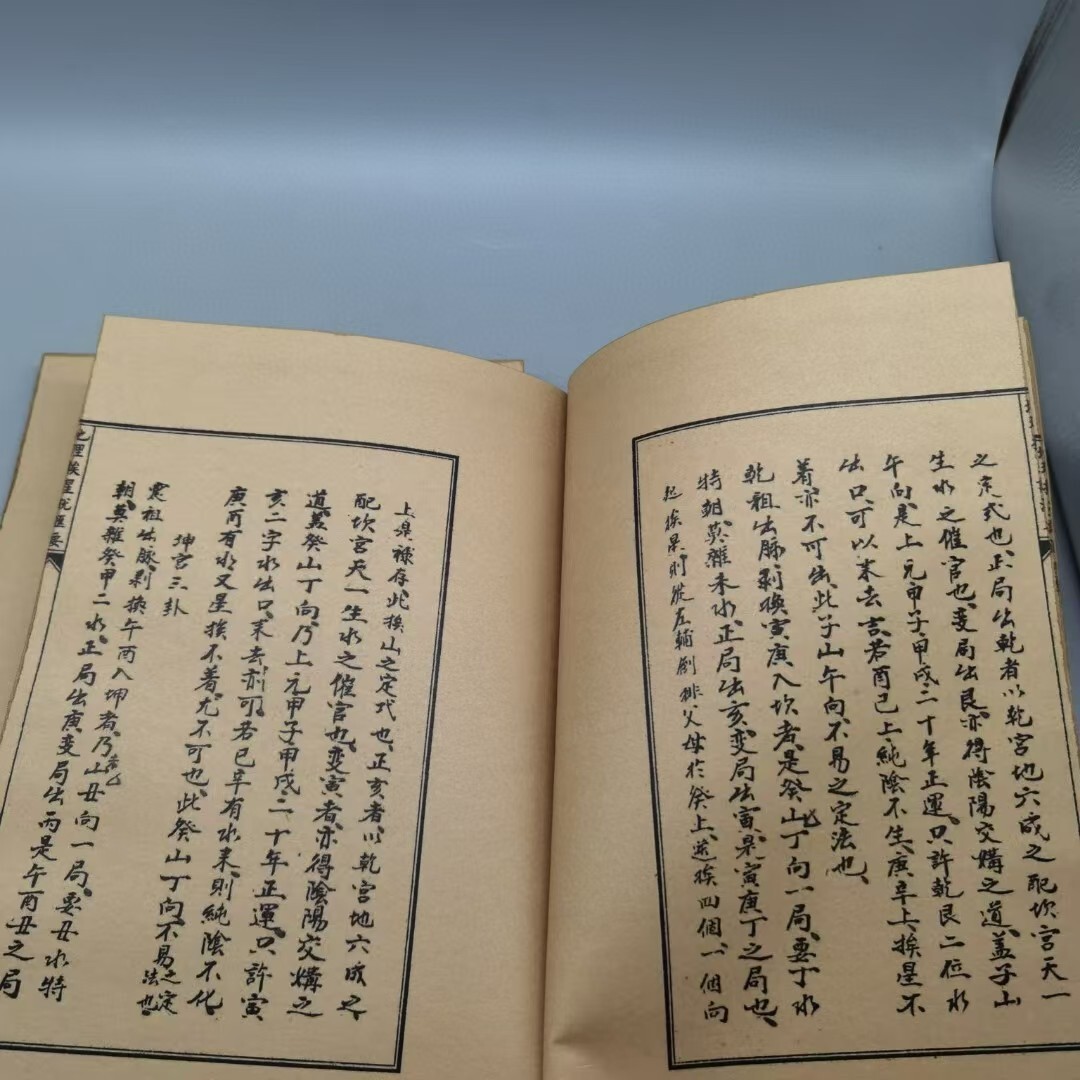 之定式也正局出乾者以乾宮地六成之配坎宮天一
生水之催官也变局出艮亦得陰陽交媾之道盖子山
午向是上元甲子甲戌二十年正運只許乾艮二位水
出只可以来去言若酉巳上純陰不生庚辛上挨星不
着亦不可出此子山午向不易之定法也
乾祖出脉剥换寅庚入坎者是癸山丁向一局要丁水
特朝莫雜未水正局出亥变局出寅是寅庚丁之局也
起挨星則從左輔剧排父母於癸上逆挨四個一個向
上是祿存此挨山之定式也正亥者以乾宮地六成之
配坎宮天一生水之催官也变寅者亦得陰陽交媾之
道盖癸山丁向乃上元甲子甲戌二十年正運只許寅
亥二字水出只来去則可若巳辛有水来則純陰不化
庚丙有水又星挨不着尤不可也此癸山丁向不易之定法也
坤宮三卦
震祖出脉剥换午丙入坤者乃丑山向一局要丑水特
朝莫雜癸甲二水正局出庚变局出丙是午酉丑之局
地理挨星説